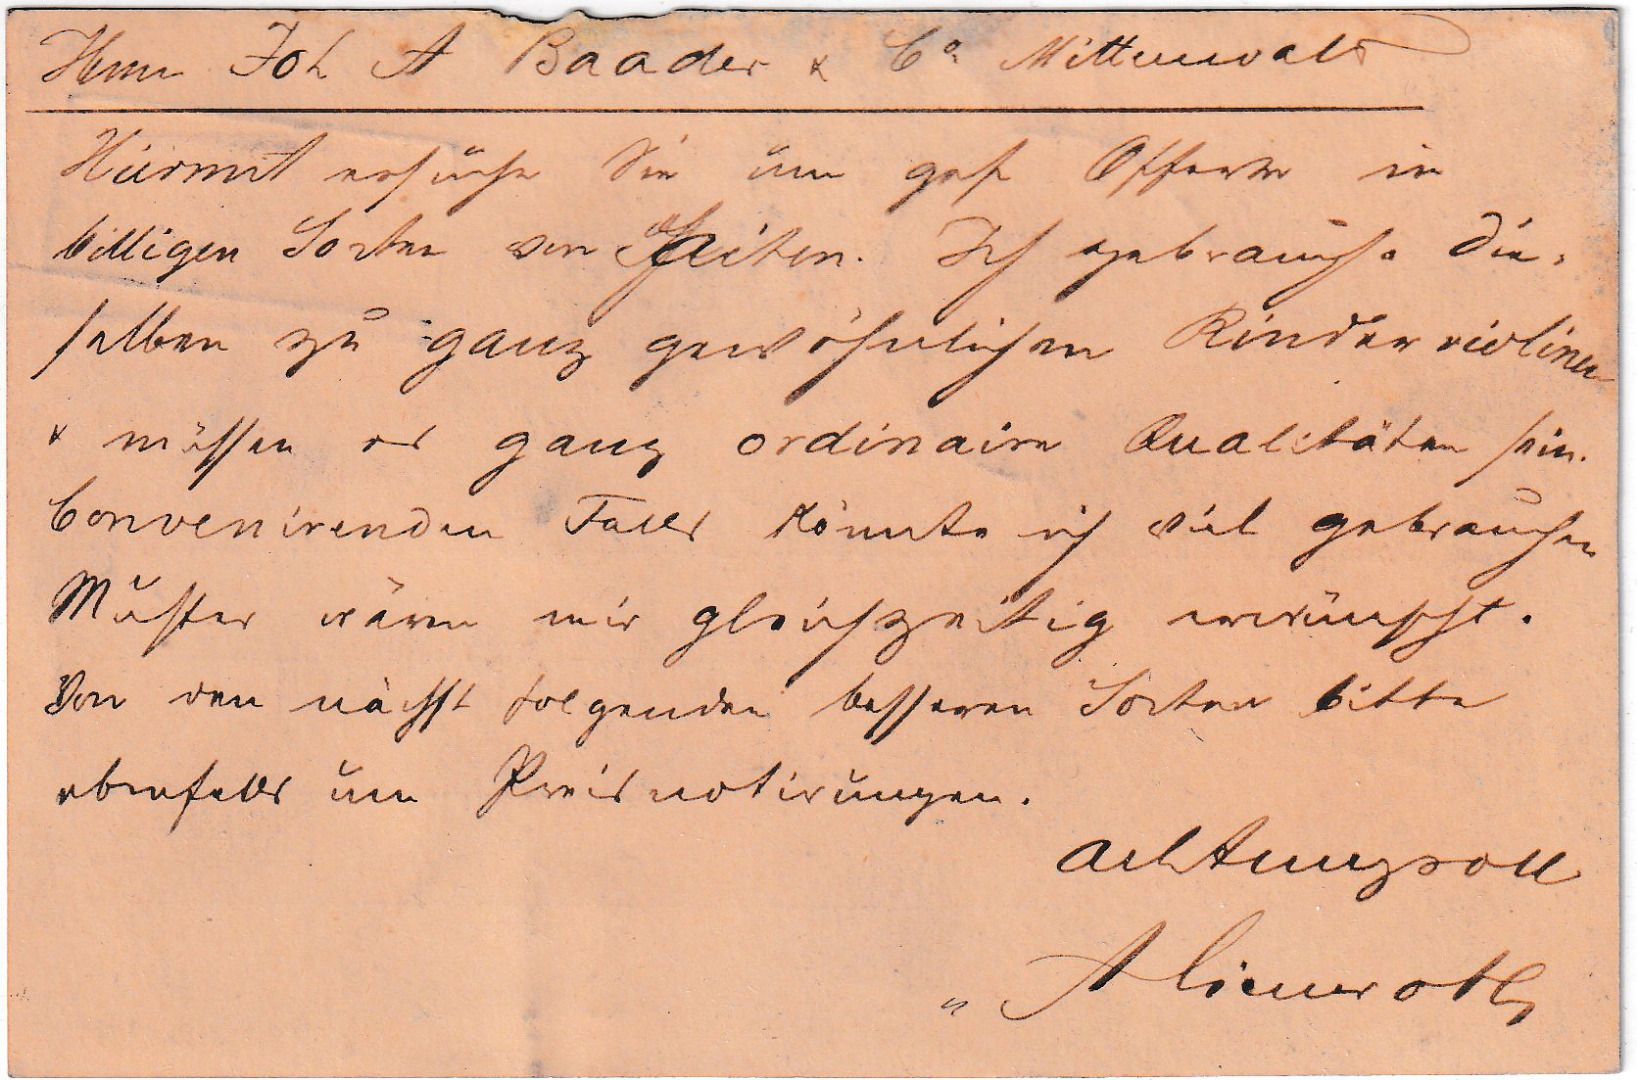 Herrn Joh A Baader & Co. Mittenwald
Hiermit ersuche Sie um gef Offerte in
billigen Sorten von Saiten. Ich gebrauche die-
selben zu ganz gewöhnlichen Kinderviolinen
& müssen es ganz ordinaire Qualitäten sein.
Convenirenden Falls könnte ich viel gebrauchen
Muster wären mir gleichzeitig erwünscht.
Von den nächst folgenden besseren Sorten bitte
ebenfalls um Preisnotirungen.
Achtungsvoll
A